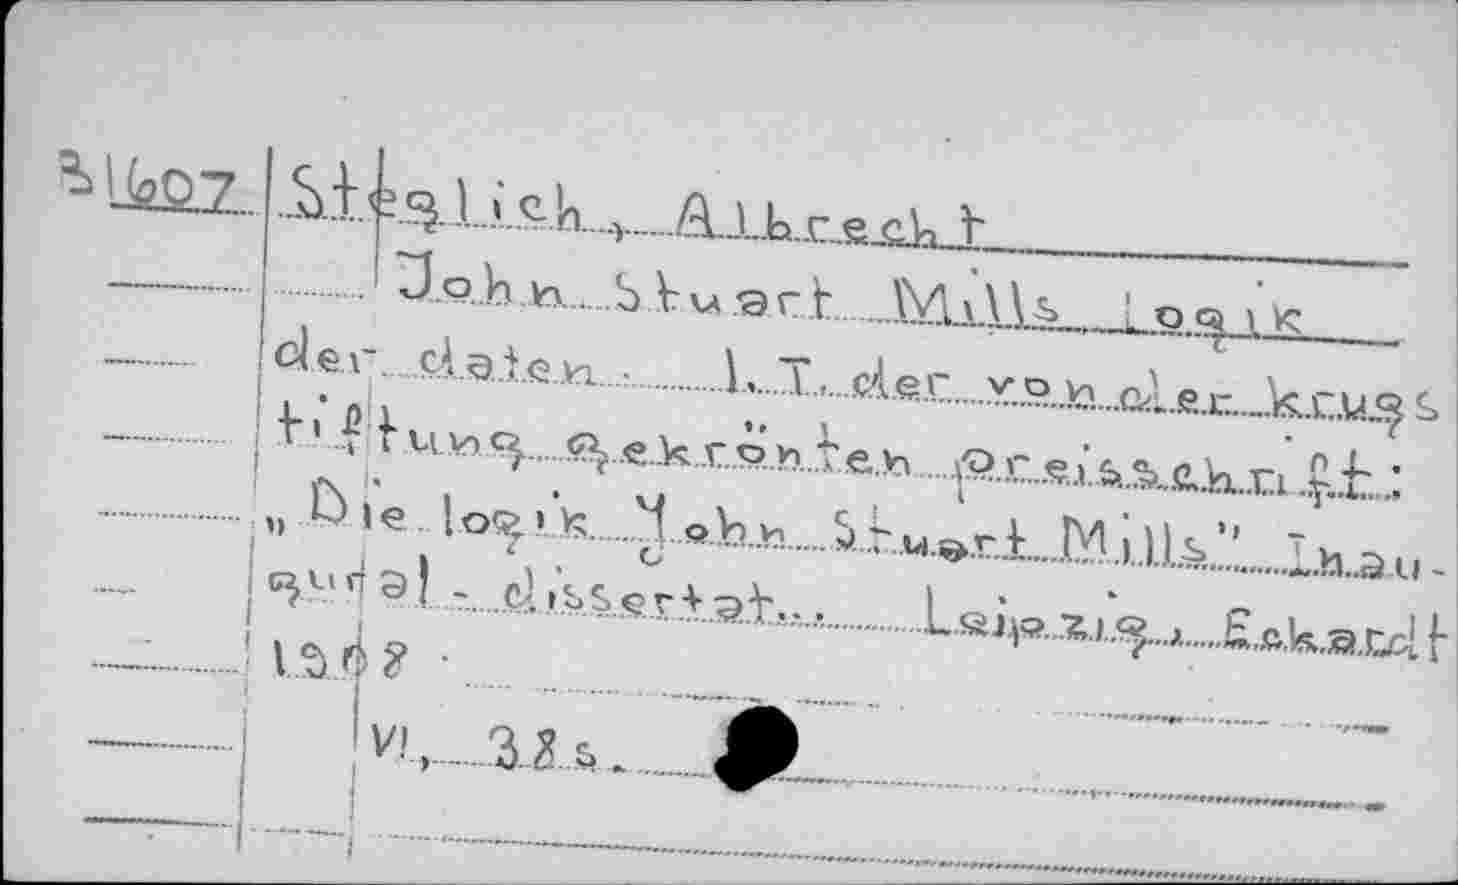 31607 Stöglich, Albrecht
John Stuart Mills Logik
der daten. I. T. der von der krugs
tiftung gekrönten preisschrift:
„Die logik John Stuart Mills" Inau-
gural-dissertat... Leipzig, Eckardt
VI, 38 s.